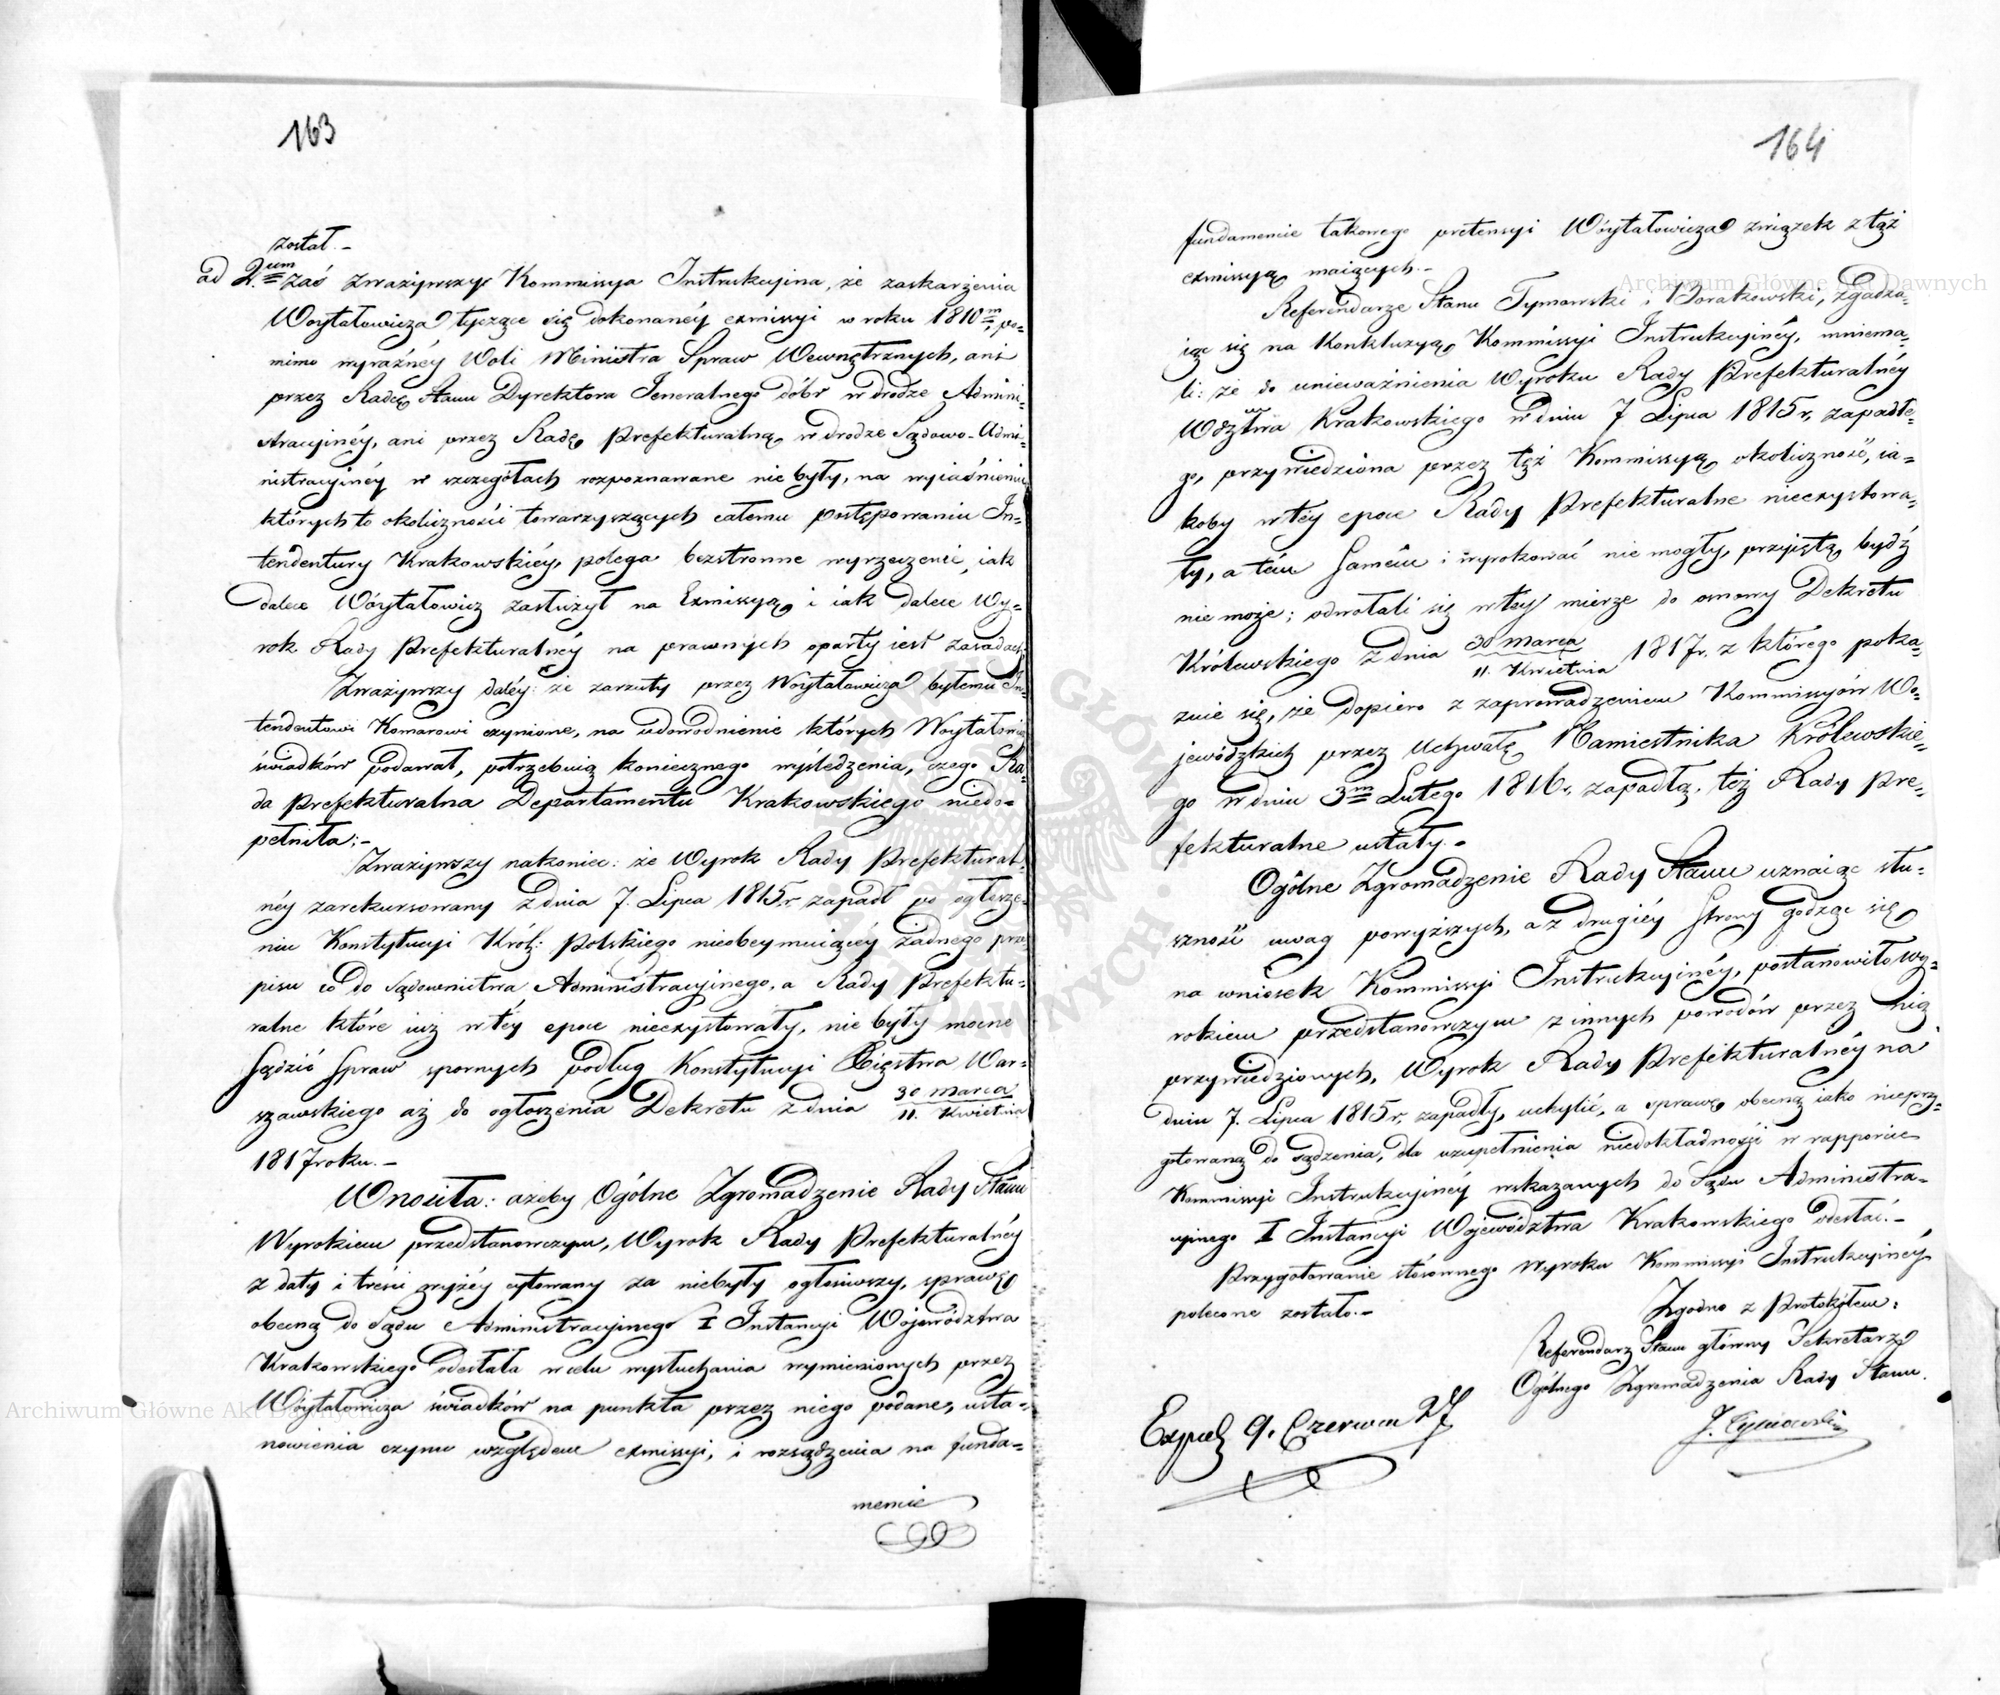 163
został.-
ad 2um zaś Zważywszy Kommissya Instrukcyina, że zaskarżenia
Woytałowicza tyczące się dokonanéy exmissyi w roku 1810m, po=
mimo wyraźnéy Woli Ministra Spraw Wewnętrznych, ani
przez Radcę Stanu Dyrektora Jeneralnego dóbr w drodze Admini=
stracyinéy, ani przez Radę Prefekturalną w drodze Sądowo-Admi=
nistracyinéy w szczegółach rozpoznawane nie były, na wyiaśnieniu
których to okoliczności towarzyszących całemu postępowaniu In=
tendentury Krakowskiéy, polega bezstronne wyrzeczenie, iak
dalece Wóytałowicz zasłużył na Exmissyą i iak dalece Wy=
rok Rady Prefekturalnéy na prawnych oparty iest zasadach
Zważywszy daléy: że zarzuty przez Woytałowicza byłemu In=
tendentowi Komarowi czynione, na udowodnienie których Woytałowicz
świadków podawał, potrzebuią koniecznego wyśledzenia, czego Ra=
da Prefekturalna Departamentu Krakowskiego niedo=
pełniła;-
Zważywszy nakoniec: że Wyrok Rady Prefektural=
néy zarekursowany z dnia 7. Lipca 1815r. zapadł po ogłosze=
niu Konstytucyi Król: Polskiego nieobeymuiącéy żadnego prze
pisu co do Sądownictwa Administracyinego, a Rady Prefektu=
ralne które iuż w téy epoce nieexystowały, nie były mocne
Sądzić Spraw spornych podług Konstytucyi Xięstwa War=
szawskiego aż do ogłoszenia Dekretu z dnia 30 Marca
11. Kwietnia
1817 roku.-
Wnosiła: ażeby Ogólne Zgromadzenie Rady Stanu
Wyrokiem przedstanowczym, Wyrok Rady Prefekturalnéy
z daty i treści wyżéy cytowany za niebyły ogłosiwszy, sprawę
obecną do Sądu Administracyinego I Instancyi Województwa
Krakowskiego odesłała w celu wysłuchania wymienionych przez
Wóytałowicza świadków na punkta przez niego podane, usta=
nowienia czynu względem exmissyi, i rozsądzenia na funda=
mencie
164
fundamencie takowego pretensyi Wóytałowicza związek z tąż
exmissyą maiących.-
Referendarze Stanu Tymowski i Boratowski, zgadza=
iąc się na Konkluzyą Kommissyi Instrukcyinéy, mniema=
li: że do unieważnienia Wyroku Rady Prefekturalnéy
Wdztwa Krakowskiego w dniu 7 Lipca 1815r. zapadłe=
go, przywiedziona przez tęż Kommissyą okoliczność, ia=
koby w téy epoce Rady Prefekturalne nieexystowa=
ły, a tém Samém i wyrokować nie mogły, przyiętą bydź
nie może; odwołali się w téy mierze do osnowy Dekretu
Królewskiego z dnia 30 Marca 1817r. z którego poka=
11. Kwietnia
zuie się, że dopiero z zaprowadzeniem Kommissyów Wo=
jewódzkich przez Uchwałę Namiestnika Królewskie=
go w dniu 3m Lutego 1816r. zapadłą, też Rady Pre=
fekturalne ustały.-
Ogólne Zgromadzenie Rady Stanu uznaiąc słu=
szność uwag powyższych, a z drugiéy Strony godząc się
na wniosek Kommissyi Instrukcyinéy, postanowiło Wy=
rokiem przedstanowczym z innych powodów przez nią
przywiedzionych, Wyrok Rady Prefekturalnéy na
dniu 7. Lipca 1815r. zapadły, uchylić, a sprawę obecną iako nieprzy=
gotowaną do sądzenia, dla uzupełnienia niedokładności w rapporcie
Kommissyi Instrukcyinéy wskazanych do Sądu Administra=
cyinego I Instancyi Województwa Krakowskiego odesłać.-
Przygotowanie stósownego Wyroku Kommissyi Instrukcyinéy
polecone zostało.-
Zgodno z Protokółem:
Referendarz Stanu główny Sekretarz
Ogólnego Zgromadzenia Rady Stanu.
Exped 9. Czerwca 27
Archiwum Główne Akt Dawnych
Archiwum Główne Akt Dawnych